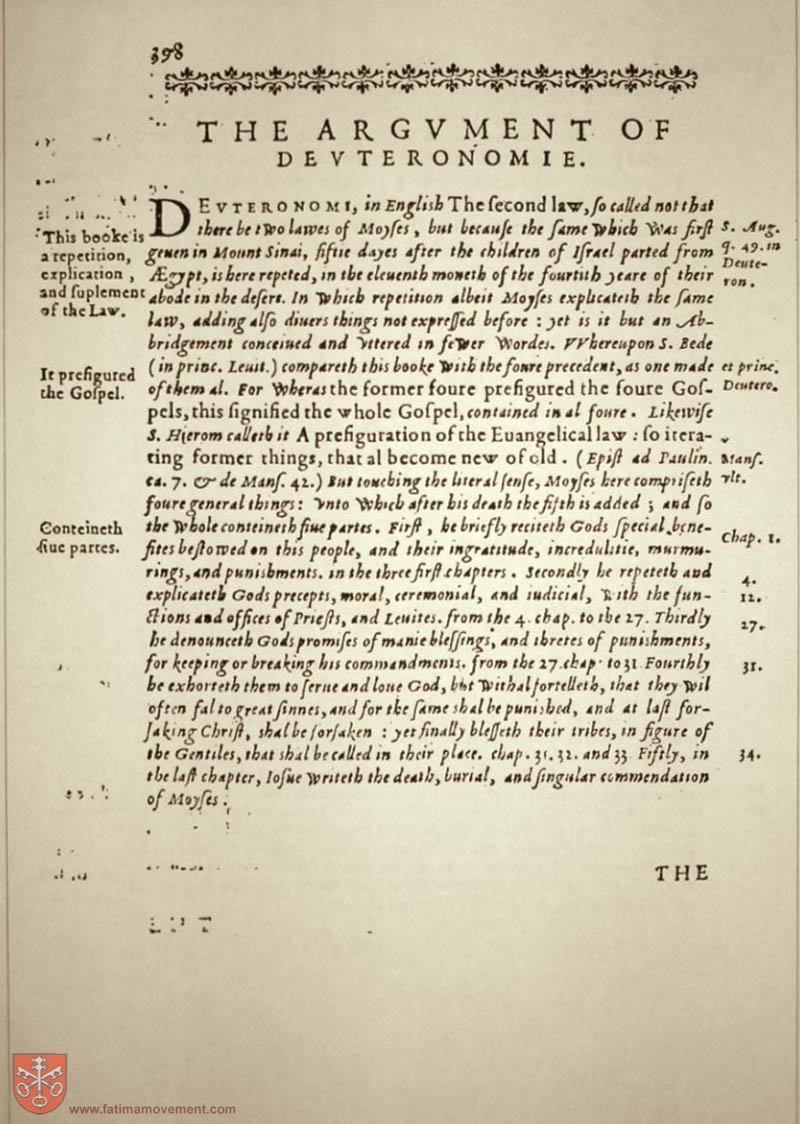 398
THE ARGVMENT OF
DEVTERONOMIE.
DEVTERONOMI, in English The ſecond law, ſo called not that
there be two lawes of Moyſes, but becauſe the ſame which was firſt
geuen in Mount Sinai, fiftie dayes after the children of Iſrael parted from
Ægypt, is here repeted, in the eleuenth moneth of the fourtith yeare of their
abode in the deſert. In which repetition albeit Moyſes explicateth the ſame
law, adding alſo diuers things not expreſſed before : yet is it but an Ab-
bridgement conceiued and vttered in fewer wordes. VVhereupon S. Bede
(in princ. Leuit.) compareth this booke with the foure precedent, as one made
of them al. For wheras the former foure prefigured the foure Goſ-
pels, this ſignified the whole Goſpel, contained in al foure. Likewiſe
S. Hierom calleth it A prefiguration of the Euangelical law : ſo itera-
ting former things, that al become new of old. (Epiſt ad Paulin.
ca. 7. & de Manſ. 42.) But touching the literal ſenſe, Moyſes here compriſeth
foure general things: vnto which after his death the fifth is added ; and ſo
the whole conteineth fiue partes. Firſt, he briefly reciteth Gods ſpecial bene-
fites beſtowed on this people, and their ingratitude, incredulitie, murmu-
rings, and punishments. in the three firſt chapters. Secondly he repeteth and
explicateth Gods precepts, moral, ceremonial, and iudicial, with the fun-
ctions and offices of Prieſts, and Leuites. from the 4. chap. to the 27. Thirdly
he denounceth Gods promiſes of manie bleſſings, and thretes of punishments,
for keeping or breaking his commandments. from the 27. chap. to 31 Fourthly
he exhorteth them to ſerue and loue God, but withal fortelleth, that they wil
often fal to great ſinnes, and for the ſame shal be punished, and at laſt for-
ſaking Chriſt, shal be forſaken : yet finally bleſſeth their tribes, in figure of
the Gentiles, that shal be called in their place. chap. 31. 32. and 33. Fiftly, in
the laſt chapter, Ioſue writeth the death, burial, and ſingular commendation
of Moyſes.
THE
This booke is
a repetition,
explication,
and ſuplement
of the Law.
It prefigured
the Goſpel.
Conteineth
fiue partes.
S. Aug.
q. 49. in
Deute-
ron.
et princ.
Deutero.
Manſ.
vlt.
Chap. 1.
4.
12.
27.
31.
34.
www.fatimamovement.com